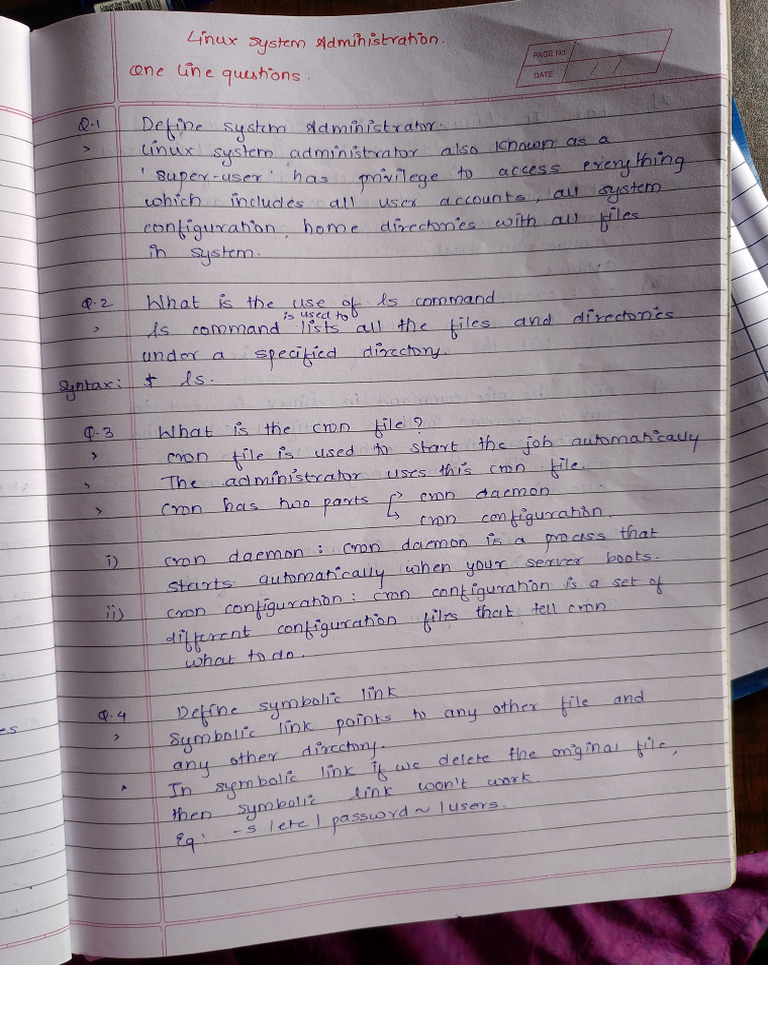 Linux System Administration.
PAGE No
One line questions.
DATE / /
Q.1 Define system Administrator.
> Linux system administrator also known as a
'super-user' has privilege to access everything
which includes all user accounts, all system
configuration, home directories with all files
in system.
Q.2 What is the use of ls command.
is used to
> ls command lists all the files and directories
under a specified directory.
Syntax: $ ls.
Q.3 What is the cron file?
> cron file is used to start the job automatically
> The administrator uses this cron file.
> Cron has two parts → cron daemon
↳ cron configuration.
i) cron daemon : Cron daemon is a process that
starts automatically when your server boots.
ii) cron configuration : cron configuration is a set of
different configuration files that tell cron
what to do.
Q.4 Define symbolic link
> Symbolic link points to any other file and
any other directory.
> In symbolic link if we delete the original file,
then symbolic link won't work.
Eg: -s /etc/password ~ /users.
es